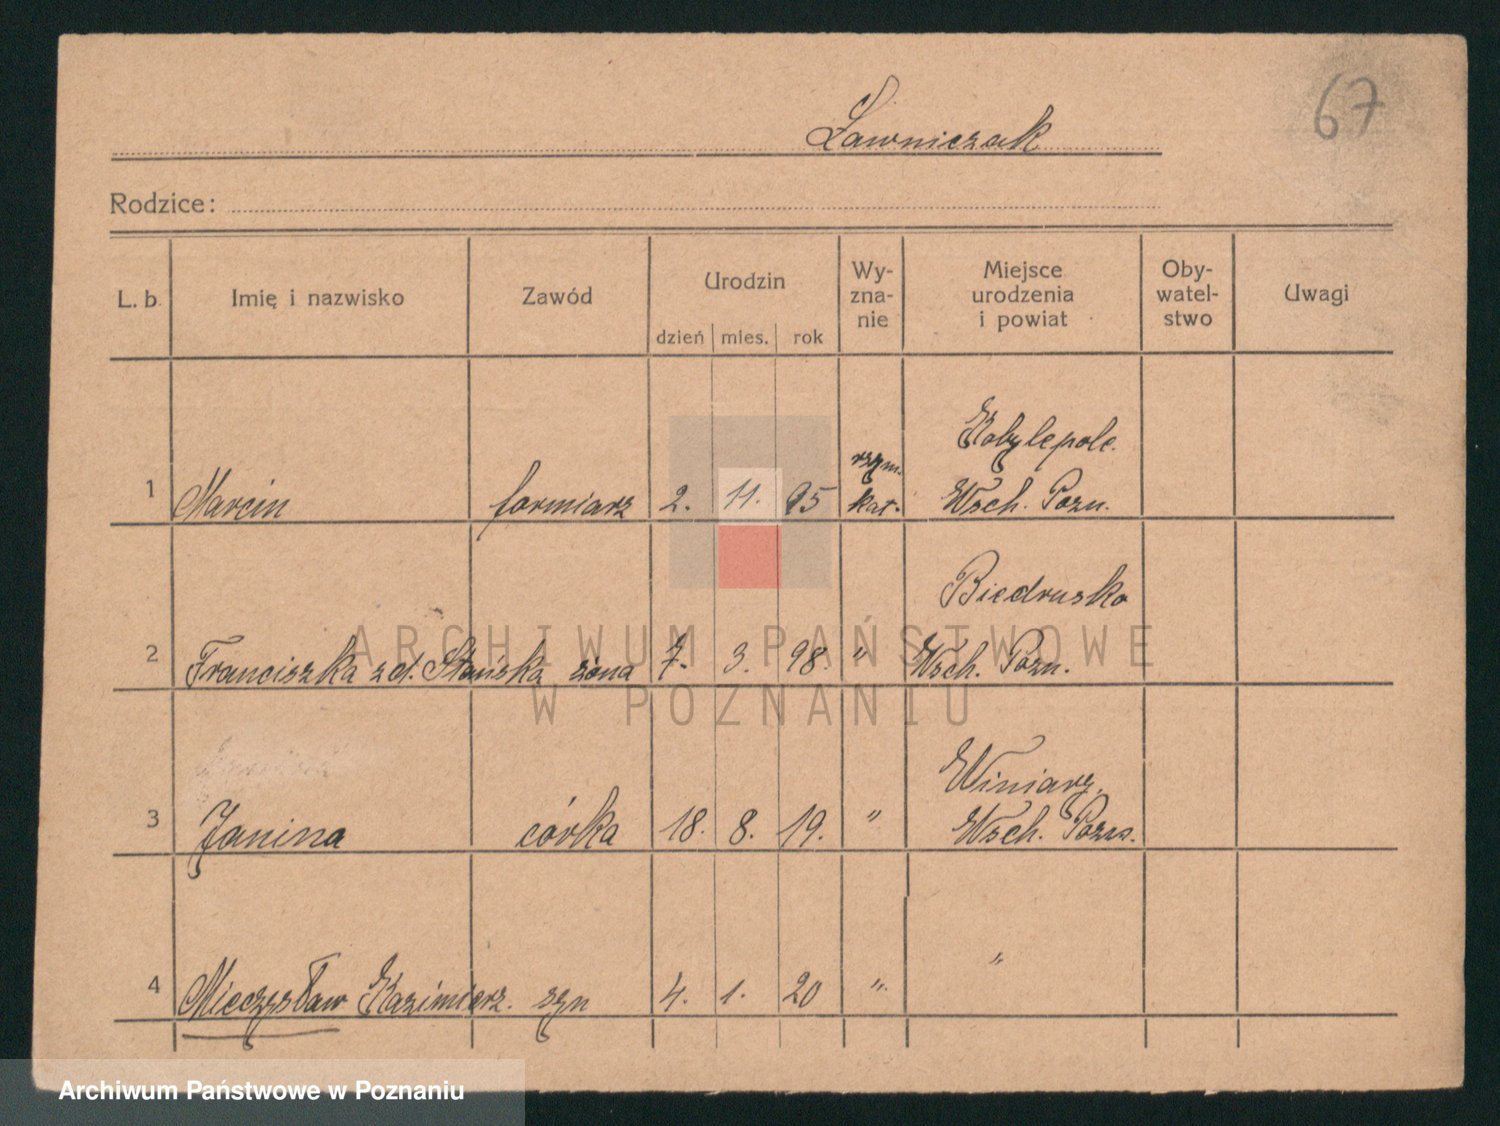 67
Ławniczak
Rodzice:
L. b. Imię i nazwisko Zawód Urodzin dzień mies. rok Wy-zna-nie Miejsce urodzenia i powiat Oby-watel-stwo Uwagi
1 Marcin formiarz 2. 11. 95 rzym. kat. Kobylepole. Wsch. Pozn.
2 Franciszka z d. Stańska żona 7. 3. 98. " Biedrusko Wsch. Pozn.
3 Janina córka 18. 8. 19. " Winiary, Wsch. Pozn.
4 Mieczysław Kazimierz. syn 4. 1. 20 " "
ARCHIWUM PAŃSTWOWE
W POZNANIU
Archiwum Państwowe w Poznaniu